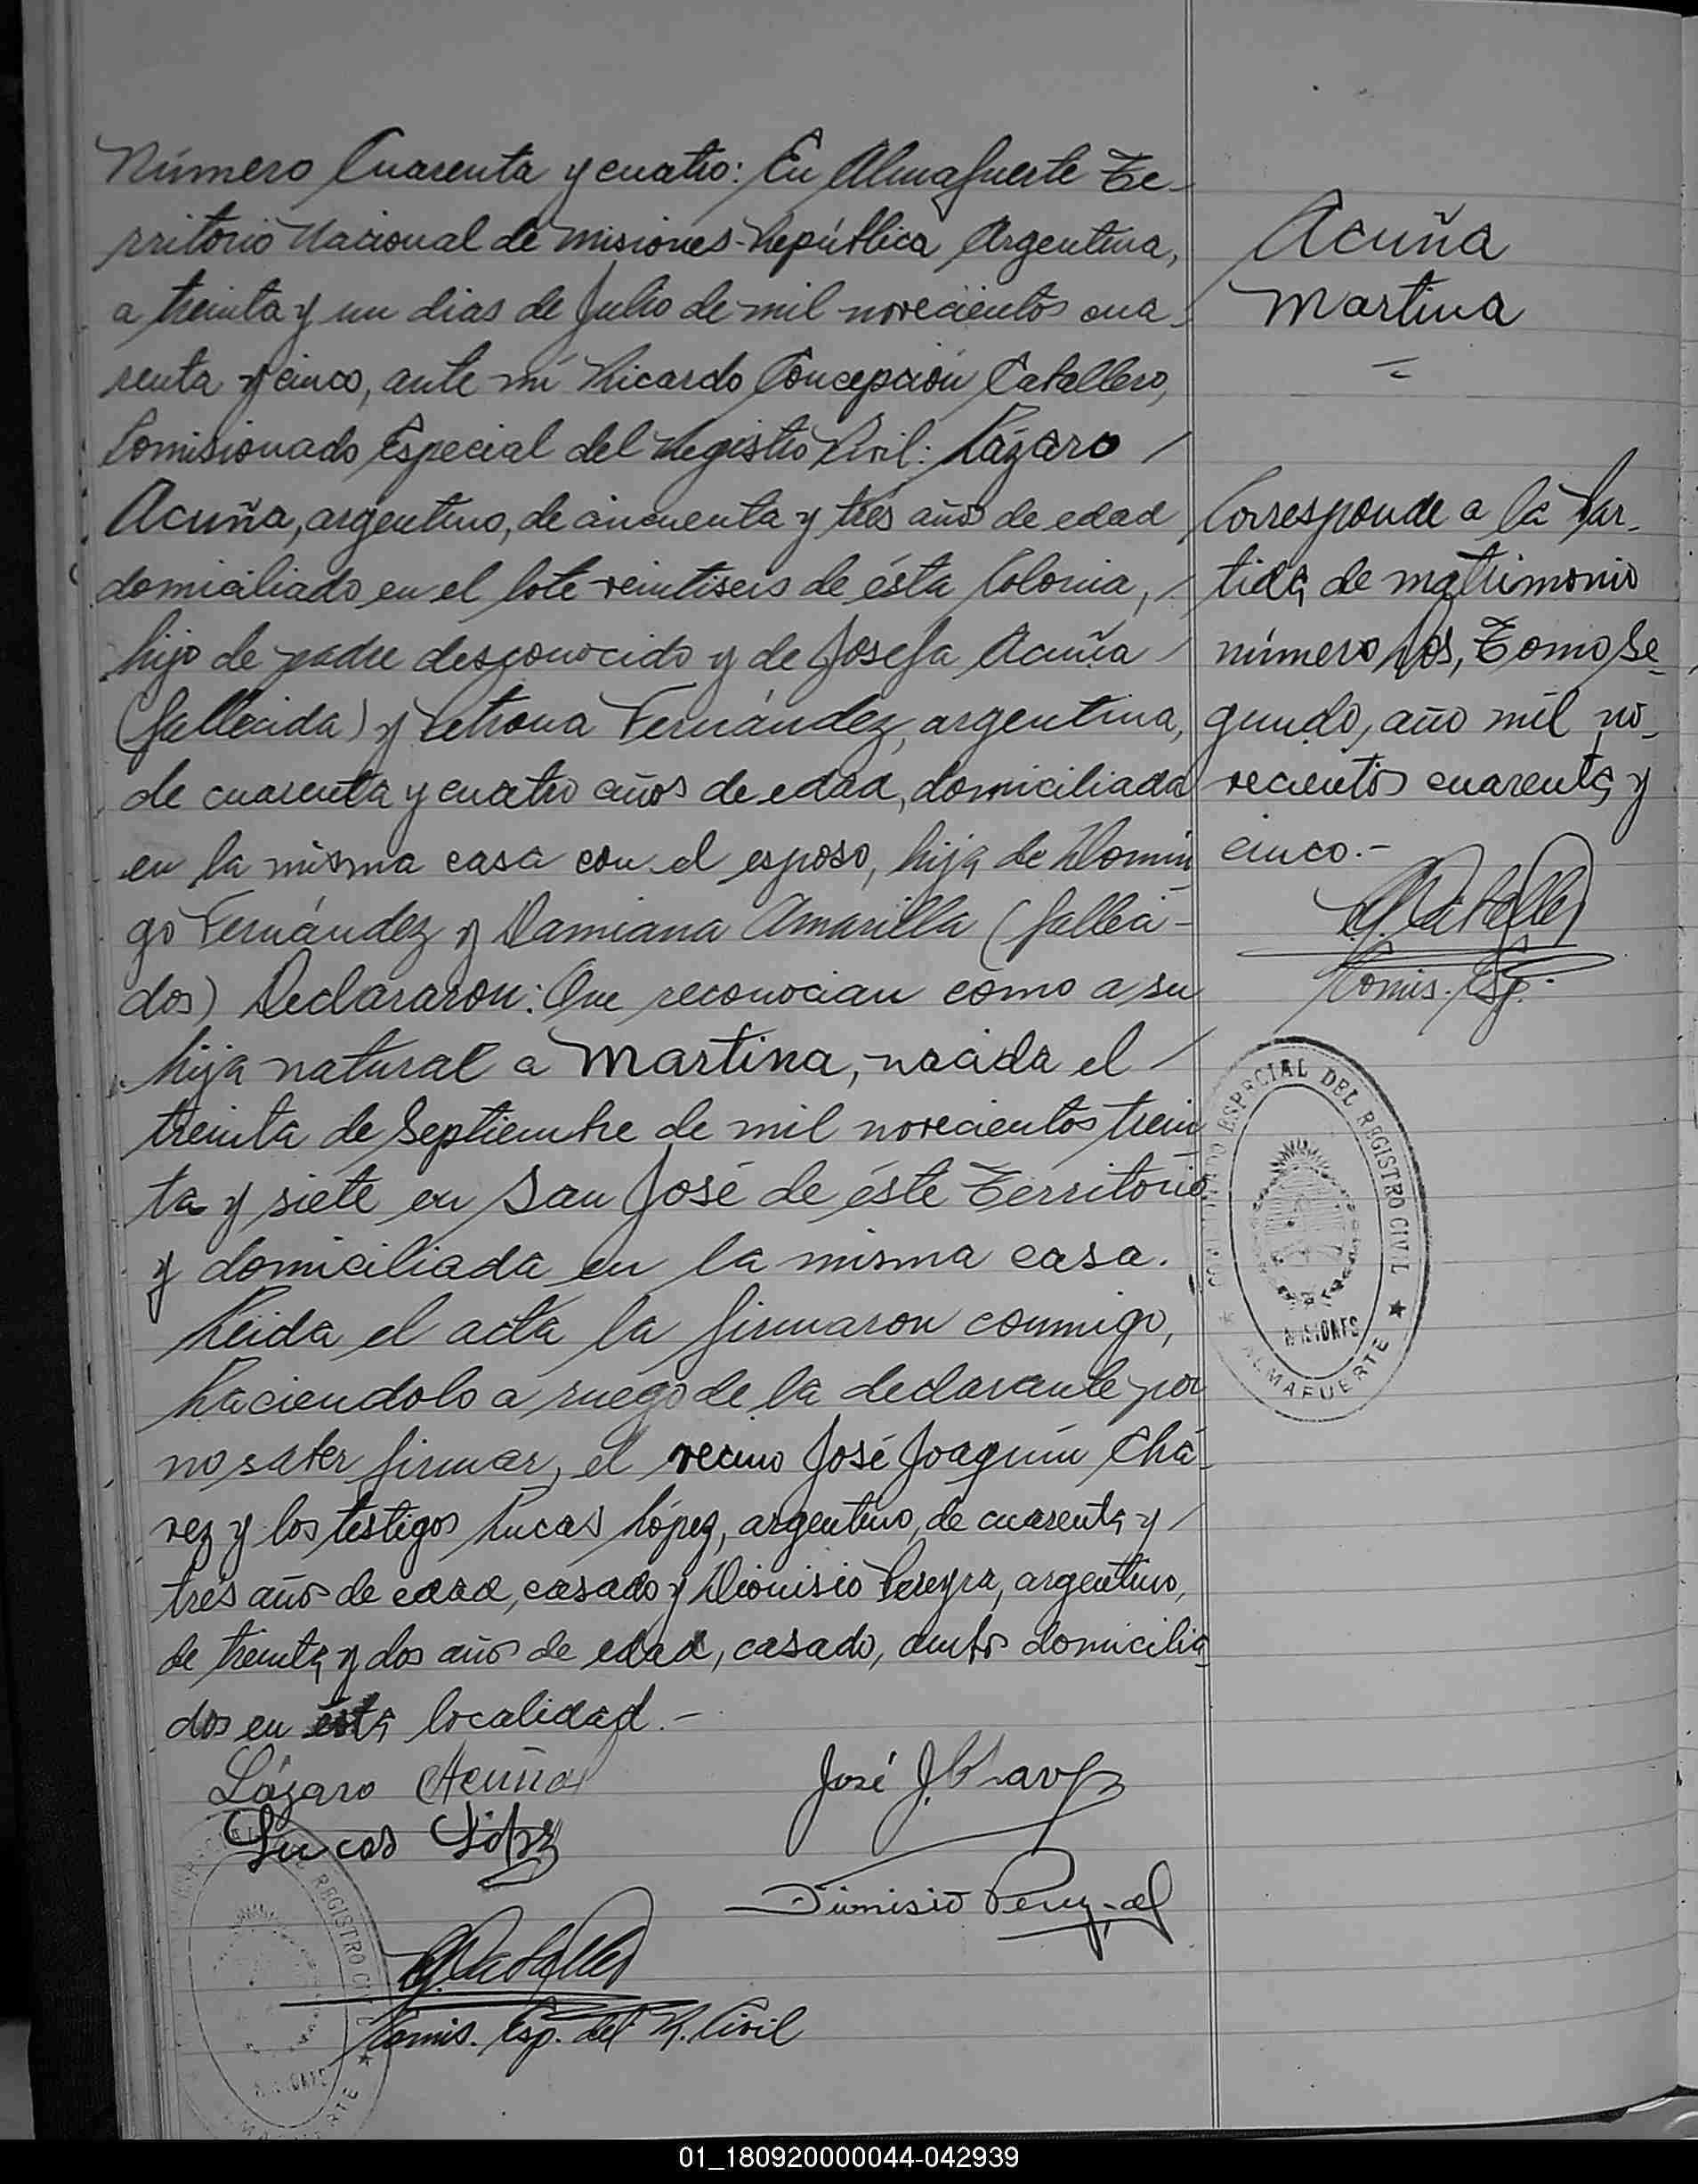 Número Cuarenta y cuatro: En Almafuerte Te-
rritorio Nacional de Misiones-República Argentina,
a treinta y un dias de Julio de mil novecientos cua-
renta y cinco, ante mí Ricardo Concepción Caballero,
Comisionado Especial del Registro Civil: Lázaro /
Acuña, argentino, de cincuenta y tres años de edad
domiciliado en el lote veintiseis de ésta Colonia, /
hijo de padre desconocido y de Josefa Acuña /
(fallecida) y Petrona Fernández, argentina,
de cuarenta y cuatro años de edad, domiciliada
en la misma casa con el esposo, hija de Domin
go Fernández y Damiana Amarilla (falleci-
dos) Declararon: Que reconocian como a su
hija natural a Martina, nacida el /
treinta de Septiembre de mil novecientos trein
ta y siete en San José de éste Territorio
y domiciliada en la misma casa.
Leida el acta la firmaron conmigo,
haciendolo a ruego de la declarante por
no saber firmar, el vecino José Joaquín Chá-
vez y los testigos Lucas López, argentino, de cuarenta y /
tres años de edad, casado y Dionisio Pereyra, argentino,
de treinta y dos años de edad, casado, ambos domicilia-
dos en ésta localidad.-
Lázaro Acuña
José J. Chavez
Lucas López
Dionisio Pereyra
R.C. Caballero
Comis. Esp. del R. Civil
Acuña
Martina
=
Corresponde a la Par-
tida de matrimonio
número Dos, Tomo Se-
gundo, año mil no-
vecientos cuarenta y
cinco.-
R.C. Caballero
Comis. Esp.
COMISIONADO ESPECIAL DEL REGISTRO CIVIL
MISIONES
ALMAFUERTE
REGISTRO CIVIL
01_180920000044-042939